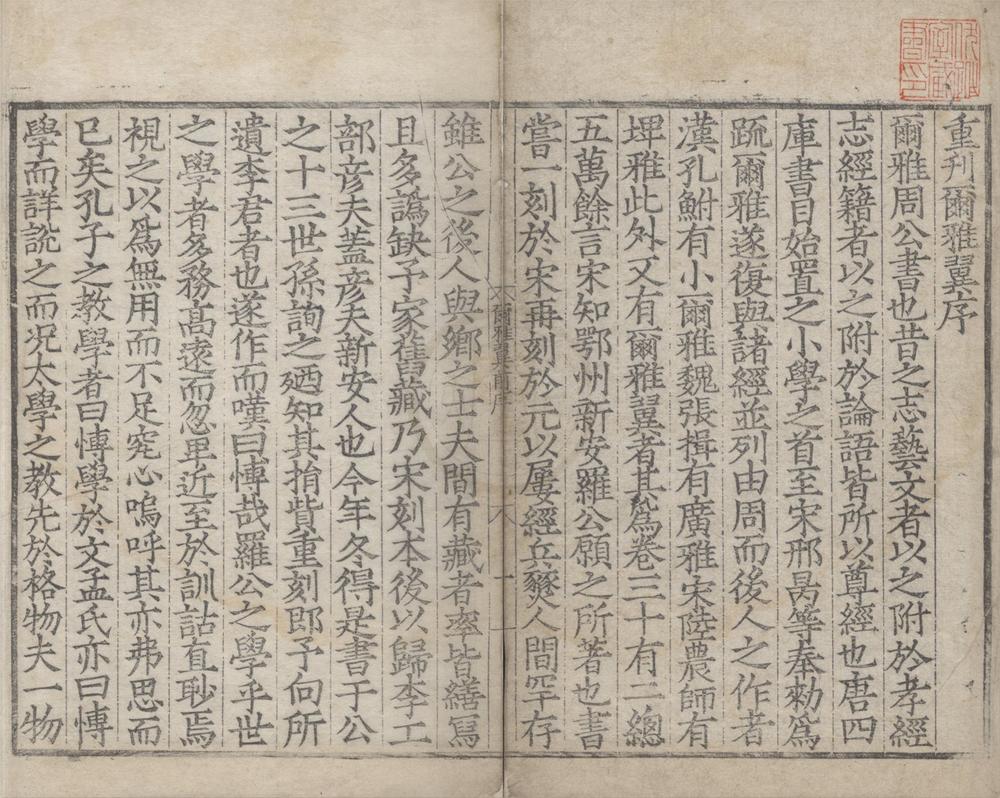 重刋爾雅翼序
爾雅周公書也昔之志藝文者以之附於孝經
志經籍者以之附於論語皆所以尊經也唐四
庫書目始置之小學之首至宋邢昺等奉勑爲
疏爾雅遂復與諸經並列由周而後人之作者
漢孔鮒有小爾雅魏張揖有廣雅宋陸農師有
埤雅此外又有爾雅翼者其爲卷三十有二總
五萬餘言宋知鄂州新安羅公願之所著也書
嘗一刻於宋再刻於元以屢經兵燹人間罕存
雖公之後人與鄉之士夫間有藏者率皆繕寫
且多譌缺予家舊藏乃宋刻本後以歸李工
部彦夫蓋彦夫新安人也今年冬得是書于公
之十三世孫詢之廼知其捐貲重刻卽予向所
遺李君者也遂作而嘆曰愽哉羅公之學乎世
之學者多務髙遠而忽卑近至於訓詁直耻焉
視之以爲無用而不足究心嗚呼其亦弗思而
已矣孔子之教學者曰愽學於文孟氏亦曰愽
學而詳說之而况太學之教先於格物夫一物
爾雅翼前序
一